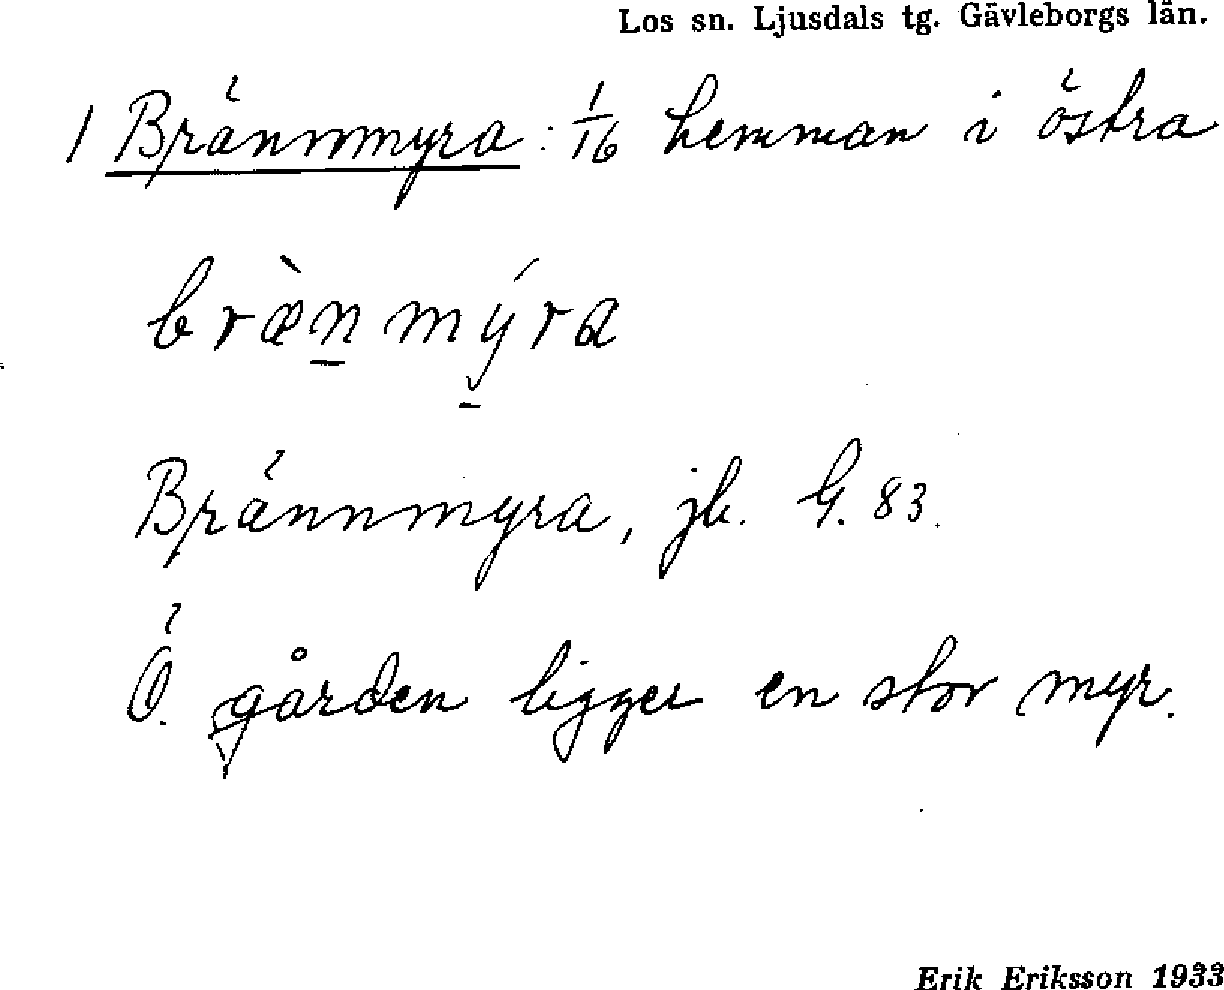 Los sn. Ljusdals tg. Gävleborgs län.
1 Brännmyra: 1/16 hemman i östra
bræ̀n̲mýra
Brännmyra, jb. G. 83.
Ö. gården ligger en stor myr.
Erik Eriksson 1933